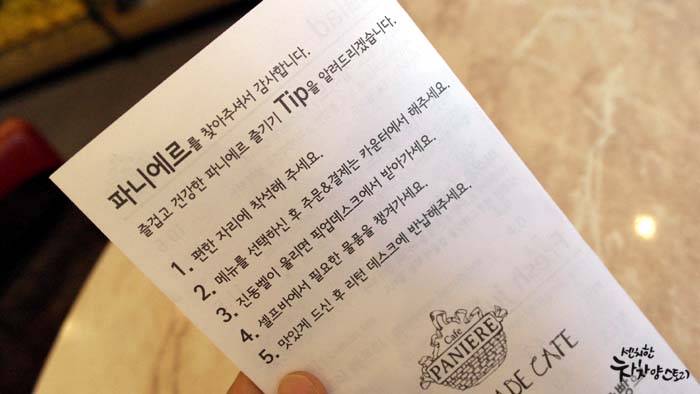 파니에르를 찾아주셔서 감사합니다.
즐겁고 건강한 파니에르 즐기기 Tip을 알려드리겠습니다.
1. 편한 자리에 착석해 주세요.
2. 메뉴를 선택하신 후 주문&결제는 카운터에서 해주세요.
3. 진동벨이 울리면 픽업데스크에서 받아가세요.
4. 셀프바에서 필요한 물품을 챙겨가세요.
5. 맛있게 드신 후 리턴 데스크에 반납해주세요.
Cafe
PANIERE
ADE CAFE
선희한
차차양스토리